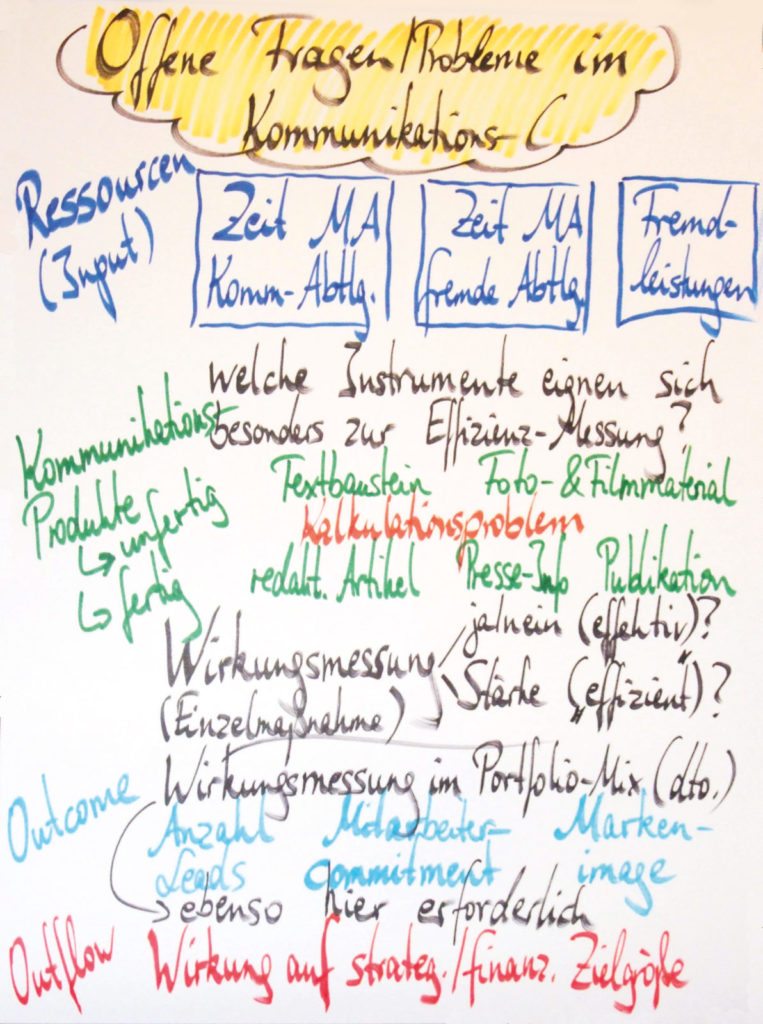 Offene Fragen/Probleme im
Kommunikations-C
Ressourcen
(Input)
Zeit MA
Komm-Abtlg.
Zeit MA
fremde Abtlg.
Fremd-
leistungen
welche Instrumente eignen sich
besonders zur Effizienz-Messung?
Kommunikations-
Produkte
↳ unfertig
↳ fertig
Textbaustein Foto- & Filmmaterial
Kalkulationsproblem
redakt. Artikel Presse-Info Publikation
Wirkungsmessung
(Einzelmaßnahme)
ja/nein (effektiv)?
Stärke („effizient")?
Wirkungsmessung im Portfolio-Mix (dto.)
Outcome
Anzahl Mitarbeiter- Marken-
Leads commitment image
→ ebenso hier erforderlich
Outflow Wirkung auf strateg./finanz. Zielgöße